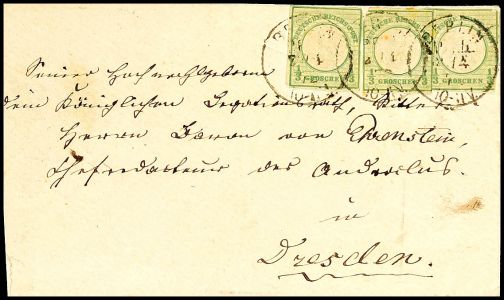 DEUTSCHE REICHS-POST DEUTSCHE REICHS-POST DEUTSCHE REICHS-POST
1/3 GROSCHEN 1/3 1/3 GROSCHEN 1/3 1/3 GROSCHEN 1/3
Seiner Hochwohlgeboren
dem Königlichen Legationsrath, Ritter
Herrn Baron von Ehrenstein,
Chefredacteur des
in
Dresden.